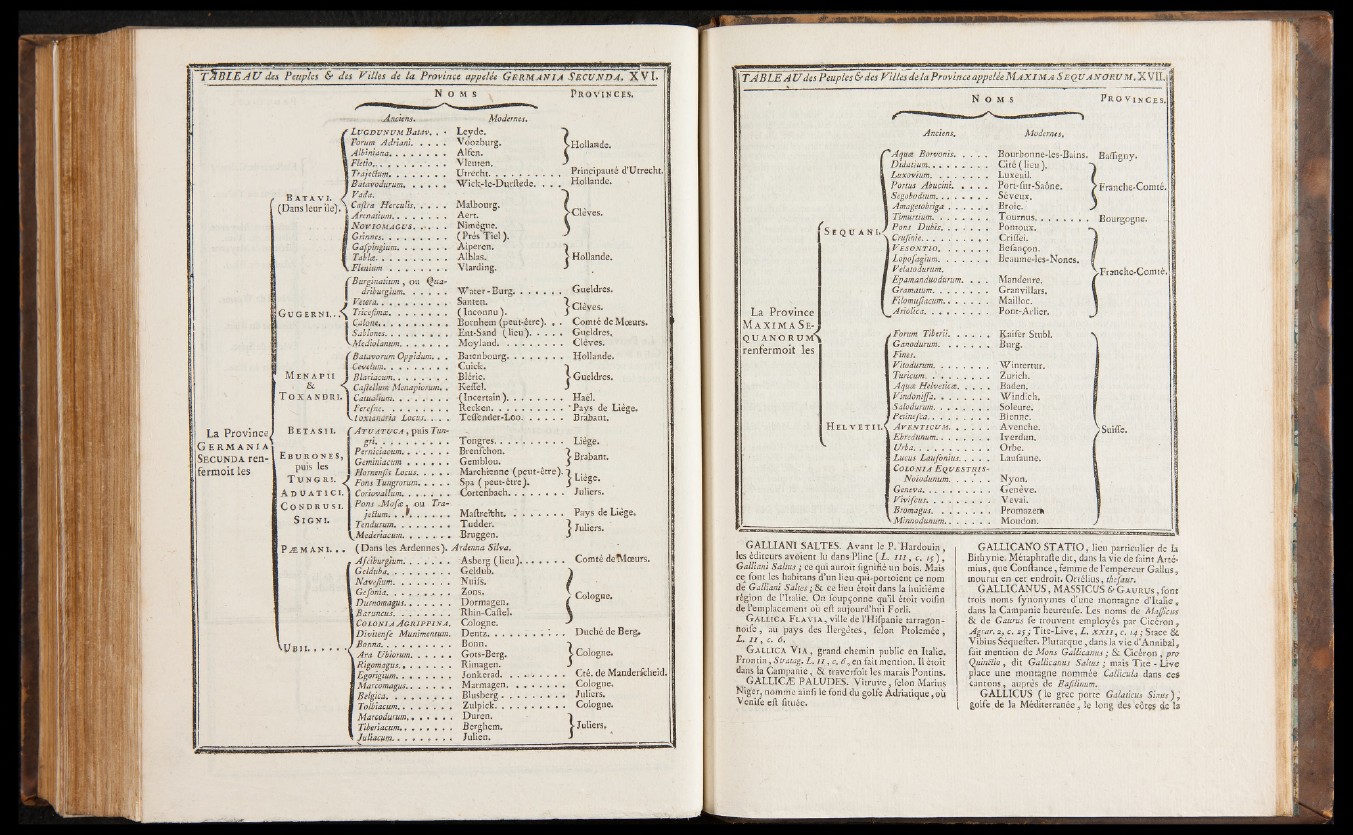 TABLEAU des Peuples & des Villes de la Province appelée GERMANIA SECUNDA. XVI.
NOMS PROVINCES.
Anciens. Modernes.
La Province GERMANIA SECUNDA renfermoit les
BATAVI. (Dans leur île).
LUGDUNUM Batav. . . Leyde. Hollande.
Forum Adriani. . . . . Voozburg.
Albiniana. . . . . . . . Alfen.
Fletio. . . . . . . . . . Vleuten.
Trajectum. . . . . . . . Utrecht. . . . . . . . . . Principauté d'Utrecht.
Batavodurum. . . . . . Wick-le-Durstede. . . . . Hollande.
Vada.
Castra Herculis. . . . . Malbourg. Clèves.
Arenatium. . . . . . . . Aert.
NOVIOMAGUS. . . . . . Nimègne.
Grinnes. . . . . . . . . (Près Tiel).
Gaspingium. . . . . . . Aiperen. Hollande.
Tablæ. . . . . . . . . . Alblas.
Flenium . . . . . . . . Vlarding.
GUGERNI. . .
Burginatium, ou Quadriburgium. . . . . . Water-Burg. . . . . . . Gueldres.
Vetera. . . . . . . . . . Santen. Clèves.
Tricesimæ. . . . . . . . (Inconnu).
Calone. . . . . . . . . . Bornhem (peut-être). . . Comté de Mœurs.
Sablones. . . . . . . . . Ent-Sand (lieu). . . . . Gueldres.
Mediolanum. . . . . . . Moyland. . . . . . . . . Clèves.
MENAPII & TOXANDRI.
Batavorum Oppidum. . . Batenbourg. . . . . . . . Hollande.
Cevelum. . . . . . . . . Cuick. Gueldres.
Blariacum. . . . . . . . Bléric.
Castellum Menapiorum. . Kessel.
Catualium. . . . . . . . (Incertain). . . . . . . . Hael.
Feresne. . . . . . . . . Recken. . . . . . . . . . Pays de Liège.
Toxiandria Locus. . . . Tessender-Loo. . . . . . Brabant.
BETASII. EBURONES, puis les TUNGRI. ADUATICI. CONDRUSI. SIGNI.
ATUATUCA, puis Tungri. . . . . . . . . . Tongres. . . . . . . . . . Liège.
Perniciacum. . . . . . . Brenschon. Brabant.
Geminiacum . . . . . . Gemblou.
Hornensis Locus. . . . . Marchienne (peut-être). Liège.
Fons Tungrorum. . . . . Spa (peut-être).
Coriovallum. . . . . . . Cortenbach. . . . . . . . Juliers.
Pons Mosæ, ou Trajectum. . . . . . . . Mastrecht. . . . . . . . Pays de Liège.
Teudurum. . . . . . . . Tudder. Juliers.
Mederiacum. . . . . . . Bruggen.
PÆMANI. . . (Dans les Ardennes). Ardenna Silva.
UBII. . . . . .
Asciburgium. . . . . . . Asberg (lieu). . . . . . . Comté de Mœurs.
Gelduba. . . . . . . . . Geldub. Cologne.
Navesium. . . . . . . . Nuiss.
Gesonia. . . . . . . . . Zons.
Durnomagus. . . . . . . Dormagen.
Baruncus. . . . . . . . Rhin-Castel.
COLONIA AGRIPPINA. Cologne.
Divitense Munimentum. Dentz. . . . . . . . . . . Duché de Berg.
Bonna. . . . . . . . . . Bonn. Cologne.
Ara Ubiorum. . . . . . Gots-Berg.
Rigomagus. . . . . . . . Rimagen.
Egorigium. . . . . . . . Jonkerad. . . . . . . . . Cté. de Manderscheid.
Marcomagus. . . . . . . Marmagen. . . . . . . . Cologne.
Belgica. . . . . . . . . Blusberg . . . . . . . . . Juliers.
Tolbiacum. . . . . . . . Zulpick. . . . . . . . . . Cologne.
Marcodurum. . . . . . . Duren. Juliers.
Tiberiacum. . . . . . . . Berghem.
Juliacum. . . . . . . . . Julien.
TABLEAU des Peuples & des Villes de la Province appelée MAXIMA SEQUANORUM. XVII.
NOMS PROVINCES.
Anciens. Modernes.
La Province MAXIMA SEQUANORUM renfermoit les
SEQUANI.
Aquæ Borvonis. . . . . Bourbonne-les-Bains. Bassigny.
Didatium. . . . . . . . . Cité (lieu). Franche-Comté.
Luxovium. . . . . . . . Luxeuil.
Portus Abucini. . . . . . Port-sur-Saône.
Segobodium. . . . . . . Séveux.
Amagetobriga . . . . . . Broie.
Tinurtium. . . . . . . . Tournus. . . . . . . . . Bourgogne.
Pons Dubis. . . . . . . . Pontoux. Franche-Comté.
Crusinie. . . . . . . . . Crissei.
VESONTIO. . . . . . . Besançon.
Loposagium. . . . . . . Beaume-les-Nones.
Velatodurum.
Epamanduodurum. . . . Mandeure.
Gramatum. . . . . . . . Granvillars.
Filomusiacum. . . . . . . Mailloc.
Ariolica. . . . . . . . . Pont-Arlier.
HELVETII.
Forum Tiberii. . . . . . Kaiser Stuhl. Suisse.
Ganodurum. . . . . . . Burg.
Fines.
Vitodurum. . . . . . . . Wintertur.
Turicum. . . . . . . . . Zurich.
Aquæ Helveticæ. . . . . Baden.
Vindonissa. . . . . . . . Windich.
Salodurum. . . . . . . . Soleure.
Petinisca. . . . . . . . . Bienne.
AVENTICUM. . . . . . Avenche.
Ebredunum. . . . . . . . Iverdun.
Urba. . . . . . . . . . . Orbe.
Lucus Lausonius. . . . . Lausaune.
COLONIA EQUESTRIS-
Noiodunum. . . . . . Nyon.
Geneva. . . . . . . . . . Genêve.
Viviscus. . . . . . . . . Vevai.
Bromagus. . . . . . . . Promazen
Minnodunum. . . . . . . Moudon.
GALLIANI SALTES. Avant le P. Hardouin,
les éditeurs avoient lu dans Pline (L. III, c. 15),
Galliani Saltus; ce qui auroit signifié un bois. Mais
ce sont les habitans d'un lieu qui portoient ce nom
de Galliani Saltes; & ce lieu étoit dans la huitième
région de l'Italie. On soupçonne qu'il étoit voisin
de l'emplacement où est aujourd'hui Forli.
GALLICA FLAVIA, ville de l'Hispanie tarragonnoise,
au pays des Ilergètes, selon Ptolemée,
L. II, c. 6.
GALLICA VIA, grand chemin public en Italie.
Frontin, Stratag. L. II, c. 6, en fait mention. Il étoit
dans la Campanie, & traversoit les marais Pontins.
GALLICÆ PALUDES. Vitruve, selon Marius
Niger, nomme ainsi le fond du golfe Adriatique, où
Venise est située.
GALLICANO STATIO, lieu particulier de la
Bithynie. Métaphraste dit, dans la vie de saint Artémius,
que Constance, femme de l'empereur Gallus,
mourut en cet endroit. Ortélius, thesaur.
GALLICANUS, MASSICUS & GAURUS, sont
trois noms synonymes d'une montagne d'Italie,
dans la Campanie heureuse. Les noms de Massicus
& de Gaurus se trouvent employés par Cicéron,
Agrar. 2, c. 25; Tite-Live, L. XXII, c. 14; Stace &
Vibius Séquester. Plutarque, dans la vie d'Annibal,
fait mention de Mons Gallicanus; & Cicéron, pro
Quinctio, dit Gallicanus Saltus; mais Tite-Live
place une montagne nommée Callicula dans ces
cantons, auprès de Basilinum.
GALLICUS (le grec porte Galaticus Sinus),
golfe de la Méditerranée, le long des côtes de la